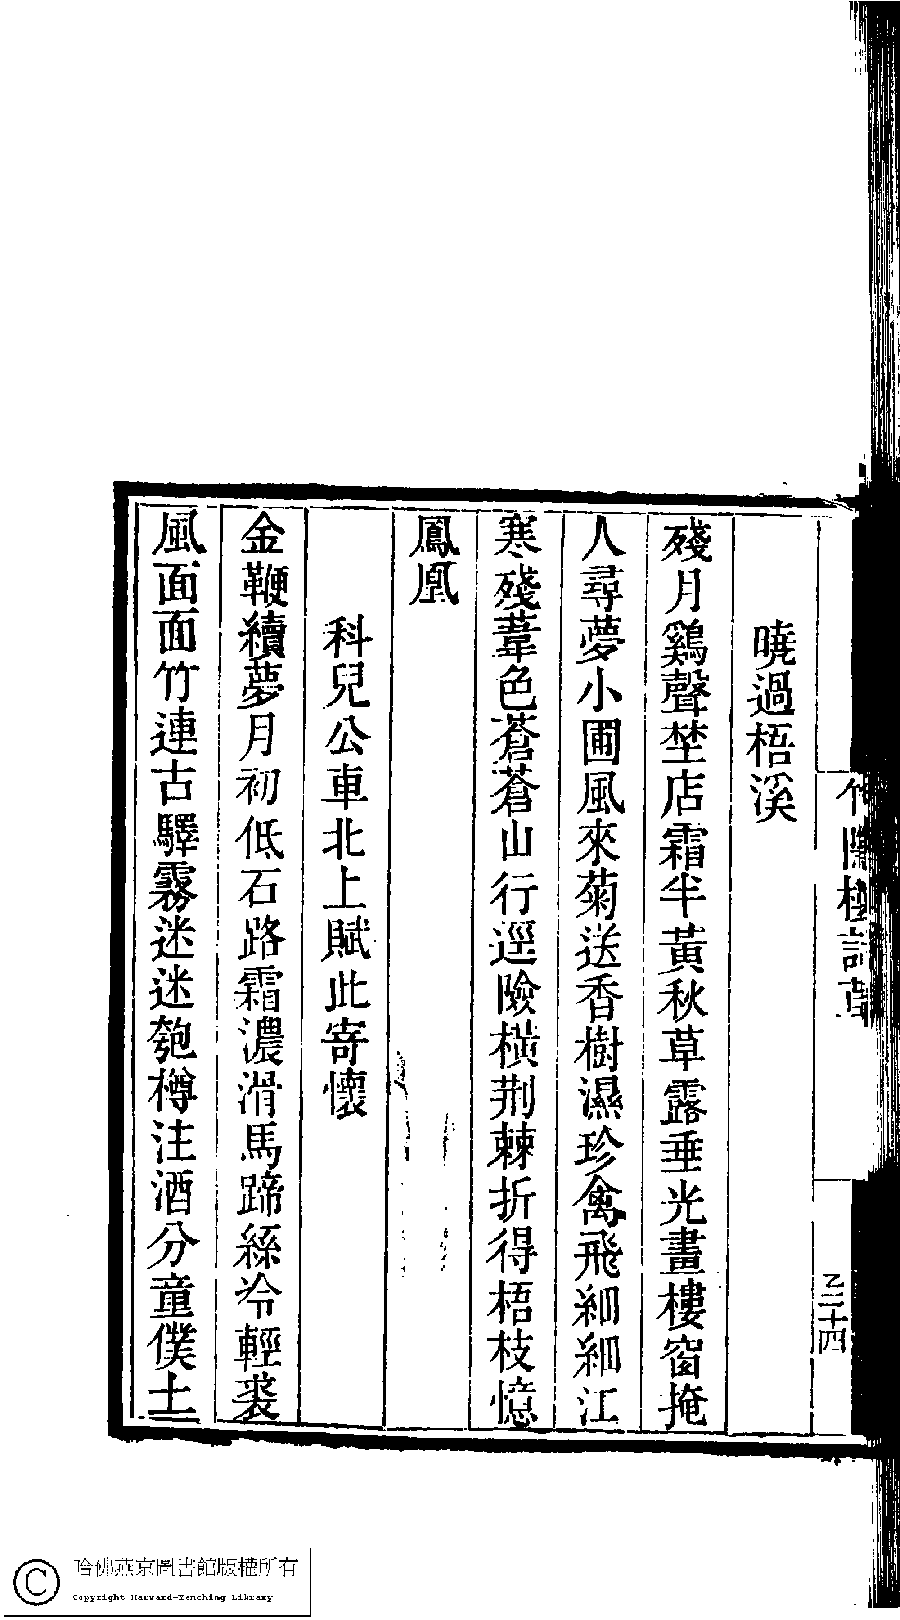 曉過梧溪
殘月鷄聲埜店霜半黃秋草露垂光畫樓窗掩
人尋夢小圃風來菊送香樹濕珍禽飛細細江
寒殘葦色蒼蒼山行逕險橫荆棘折得梧枝憶
鳳凰
科兒公車北上賦此寄懷
金鞭續夢月初低石路霜濃滑馬蹄絲冷輕裘
風面面竹連古驛霧迷迷匏樽注酒分童僕土
乙二十四
哈佛燕京圖書館版權所有
Copyright Harvard-Yenching Library